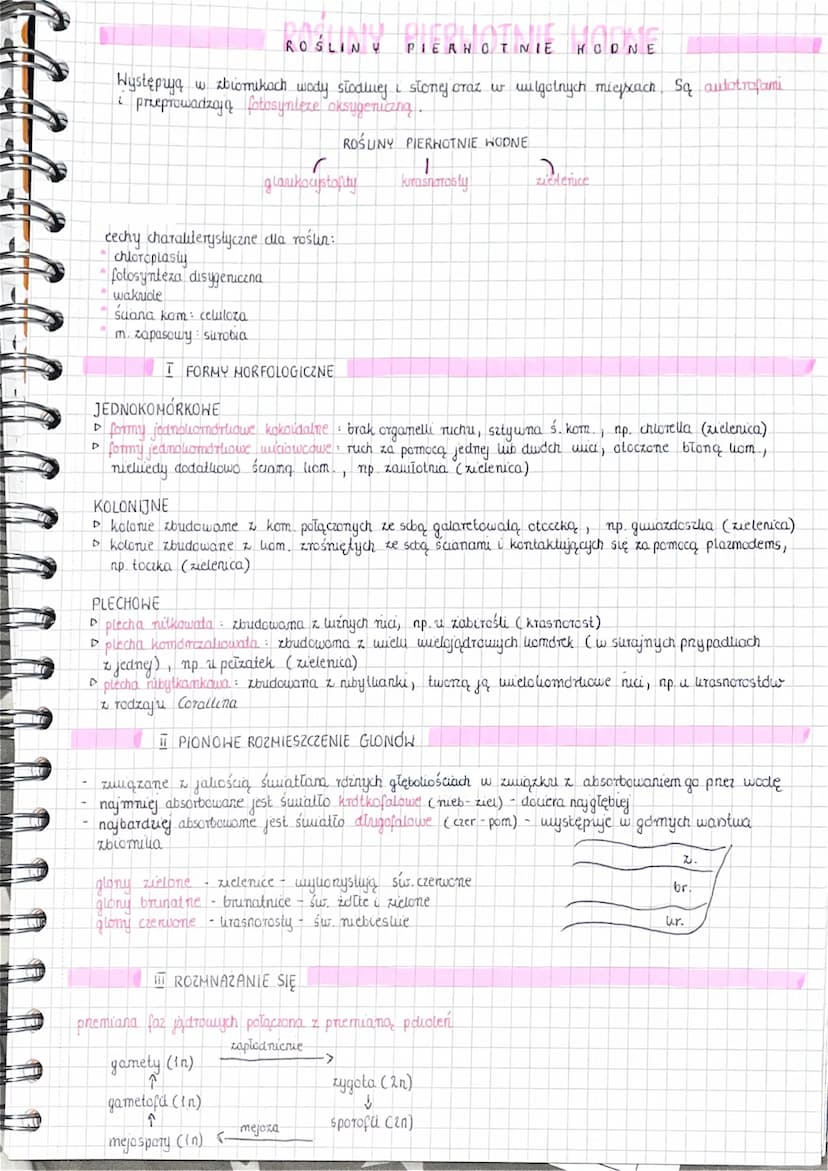 ROŚLINY PIERWOTNIE WODNE
Występują w zbiornikach wody słodkiej i słonej oraz w wilgotnych miejscach. Są autotrofami
i przeprowadzają fotosyntezę oksygeniczną.
ROŚLINY PIERWOTNIE WODNE
glaukocystofity krasnorosty zielenice
cechy charakterystyczne dla roślin:
chloroplasty
fotosynteza oksygeniczna
wakuole
ściana kom: celuloza
m. zapasowy: skrobia
I FORMY MORFOLOGICZNE
JEDNOKOMÓRKOWE
▷ formy jednokomórkowe kokoidalne : brak organelli ruchu, sztywna ś. kom., np. chlorella (zielenica)
▷ formy jednokomórkowe wiciowcowe : ruch za pomocą jednej lub dwóch wici, otoczone błoną kom.,
niekiedy dodatkowo ścianą kom., np. zawłotnia (zielenica)
KOLONIJNE
▷ kolonie zbudowane z kom. połączonych ze sobą galaretowatą otoczką, np. gwiazdoszka (zielenica)
▷ kolonie zbudowane z kom. zrośniętych ze sobą ścianami i kontaktujących się za pomocą plazmodesm,
np. toczka (zielenica)
PLECHOWE
▷ plecha nitkowata : zbudowana z luźnych nici, np. u żabirośli (krasnorost)
▷ plecha komórczakowata : zbudowana z wielu wielojądrowych komórek (w skrajnych przypadkach
z jednej), np. u pełzatek (zielenica)
▷ plecha nibytkankowa : zbudowana z nibytkanki, tworzą ją wielokomórkowe nici, np. u krasnorostów
z rodzaju Corallina
II PIONOWE ROZMIESZCZENIE GLONÓW
- związane z jakością światła na różnych głębokościach w związku z absorbowaniem go przez wodę
- najmniej absorbowane jest światło krótkofalowe (nieb-ziel) - dociera najgłębiej
- najbardziej absorbowane jest światło długofalowe (czer-pom) - występuje w górnych warstwa
zbiornika
glony zielone - zielenice - wykorzystują św. czerwone
glony brunatne - brunatnice - św. żółte i zielone
glony czerwone - krasnorosty - św. niebieskie
z.
br.
kr.
III ROZMNAŻANIE SIĘ
przemiana faz jądrowych połączona z przemianą pokoleń
zapłodnienie
gamety (1n)
zygota (2n)
gametofit (1n)
sporofit (2n)
mejospory (1n) mejoza